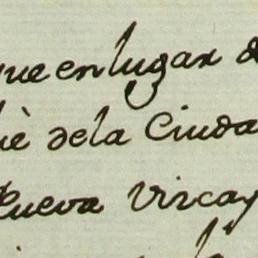 que en lugar d
è dela Ciuda
Nueva Vizcay